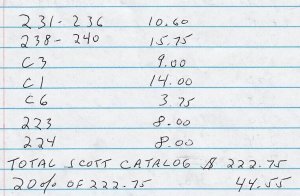 231 - 236 10.60
238 - 240 15.75
C3 9.00
C1 14.00
C6 3.75
223 8.00
224 8.00
TOTAL SCOTT CATALOG $ 222.75
20% OF 222.75 44.55